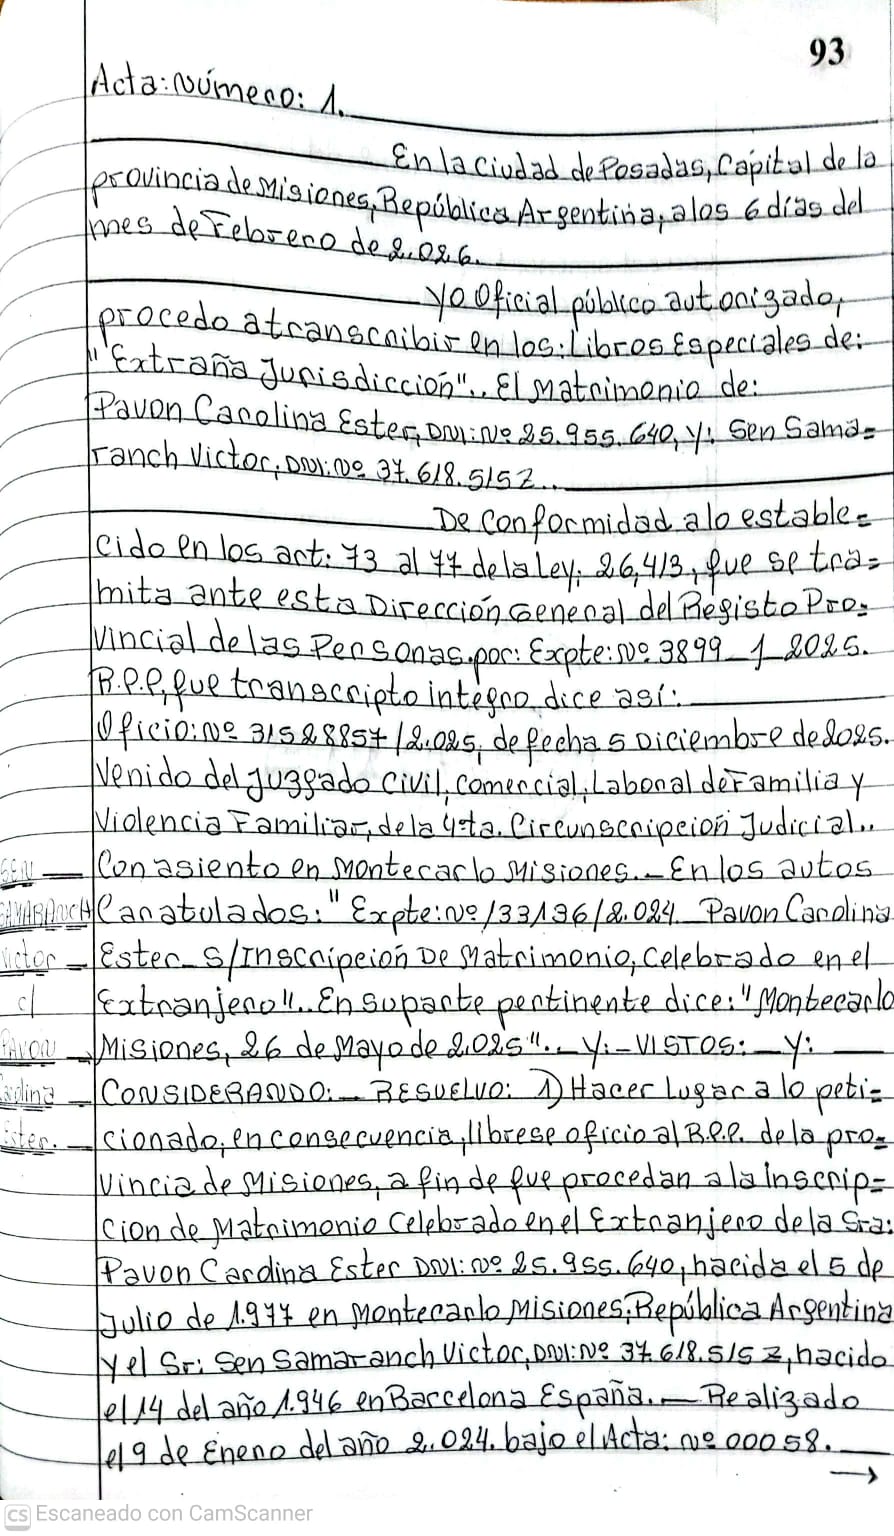 93
Acta: Número: 1.
En la Ciudad de Posadas, Capital de la
provincia de Misiones, República Argentina, a los 6 días del
mes de Febrero de 2.026.
Yo Oficial público autorizado,
procedo a transcribir en los: Libros Especiales de:
"Extraña Jurisdicción".. El Matrimonio de:
Pavon Carolina Ester, DNI: Nº 25.955.640, y: Sen Sama=
ranch Victor, DNI: Nº 37.618.515Z..
De Conformidad a lo estable=
cido en los art: 73 al 77 de la Ley: 26,413, que se tra=
mita ante esta Dirección General del Registo Pro=
vincial de las Personas. por: Expte: Nº 3899_1_2025.
R.P.P, que transcripto integro dice así:
Oficio: Nº 31528857/2.025, de fecha 5 Diciembre de 2025.
Venido del Juzgado Civil, Comercial, Laboral de Familia y
Violencia Familiar, de la 4ta. Circunscripción Judicial..
Con asiento en Montecarlo Misiones._ En los autos
Caratulados: "Expte: Nº 133136/2.024_ Pavon Carolina
Ester_ S/Inscripción De Matrimonio, Celebrado en el
Extranjero".. En su parte pertinente dice: "Montecarlo
Misiones, 26 de Mayo de 2.025"._ Y:_ VISTOS:_ Y:
CONSIDERANDO:_ RESUELVO: 1) Hacer Lugar a lo peti=
cionado, en consecuencia, librese oficio al R.P.P. de la pro=
vincia de Misiones, a fin de que procedan a la inscrip=
cion de Matrimonio Celebrado en el Extranjero de la Sra:
Pavon Carolina Ester DNI: Nº 25.955.640, nacida el 5 de
Julio de 1.977 en Montecarlo Misiones, República Argentina
y el Sr: Sen Samaranch Victor, DNI: Nº 37.618.515Z, nacido
el 14 del año 1.946 en Barcelona España._ Realizado
el 9 de Enero del año 2.024. bajo el Acta: Nº 00058.
→
SEN
SAMARANCH
Victor
c/
PAVON
Carolina
Ester.
CS Escaneado con CamScanner